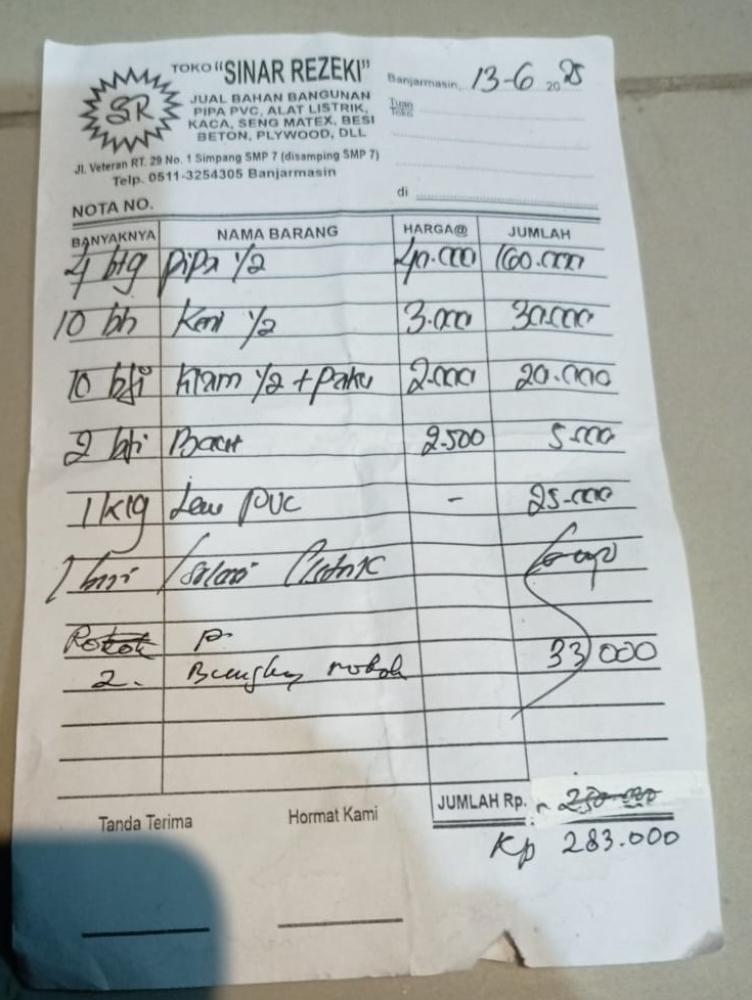 TOKO "SINAR REZEKI"
SR
JUAL BAHAN BANGUNAN
PIPA PVC, ALAT LISTRIK,
KACA, SENG MATEX, BESI
BETON, PLYWOOD, DLL
Jl. Veteran RT. 29 No. 1 Simpang SMP 7 (disamping SMP 7)
Telp. 0511-3254305 Banjarmasin
Banjarmasin, 13-6 2025
Tuan
Toko
di
NOTA NO.
BANYAKNYA NAMA BARANG HARGA@ JUMLAH
4 btg pipa 1/2 40.000 160.000
10 bh Keni 1/2 3.000 30.000
10 bji Klam 1/2 + paku 2.000 20.000
2 bji 2.500 5.000
1 klg Lem PVC - 25.000
1 Listrik
Rokok p.
2. Bungkus rokok 33 000
JUMLAH Rp. 250.000
Rp 283.000
Tanda Terima Hormat Kami